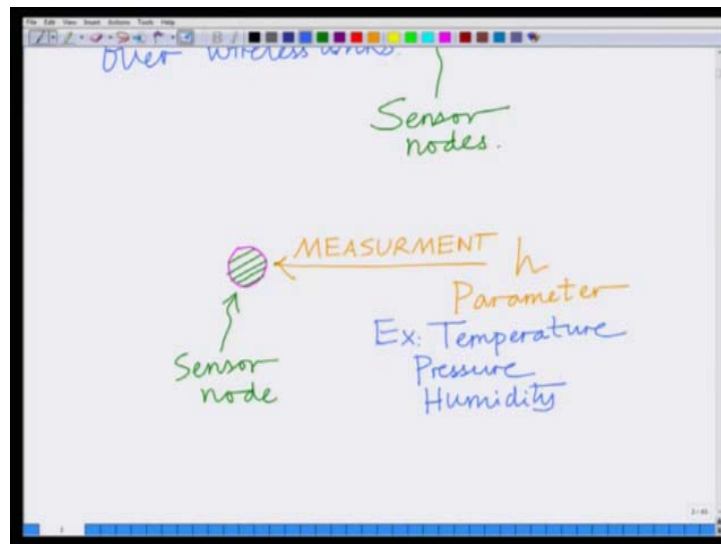 File Edit View Insert Actions Tools Help
over wireless links.
Sensor
nodes.
MEASURMENT h
Parameter
Ex: Temperature
Pressure
Humidity
Sensor
node